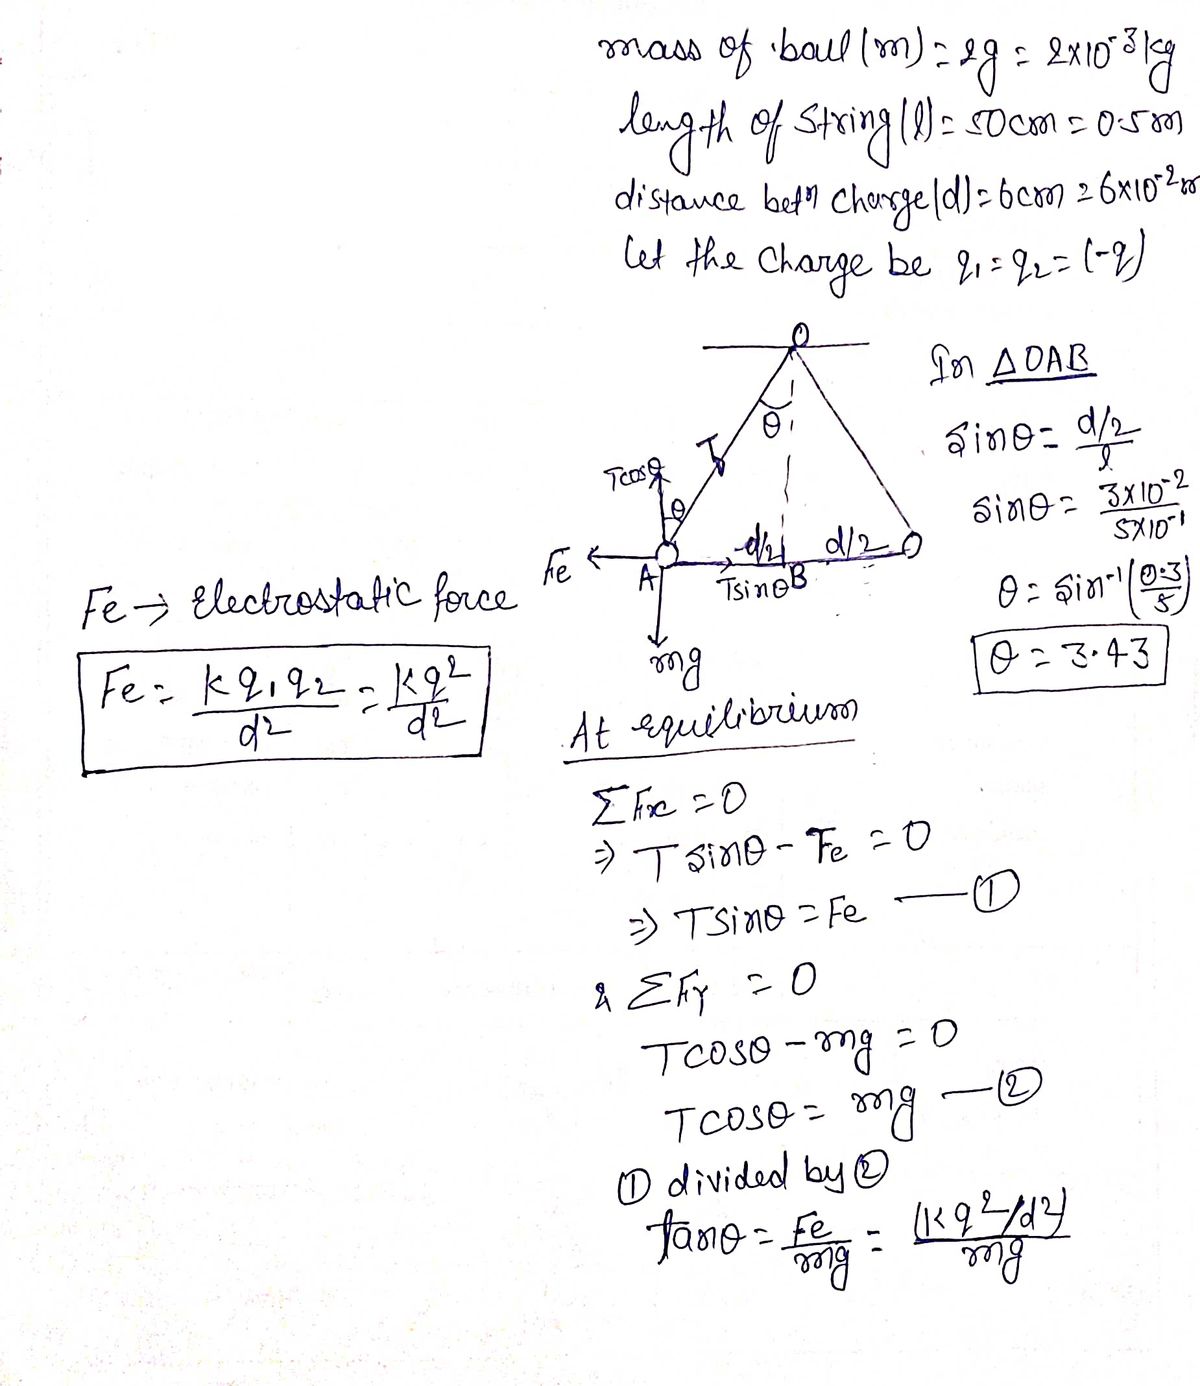 mass of ball (m) = 2g = 2×10⁻³ kg
length of string (l) = 50cm = 0.5m
distance betⁿ charge (d) = 6cm = 6×10⁻² m
Let the charge be q₁ = q₂ = (-q)
O
In △OAB
θ
sinθ = (d/2)/l
T
Tcosθ
θ
sinθ = (3×10⁻²)/(5×10⁻¹)
d/2 d/2
Fe
A
Tsinθ B
θ = sin⁻¹(0.3/5)
Fe → Electrostatic force
mg
θ = 3.43
Fe = kq₁q₂/d² = kq²/d²
At equilibrium
ΣFx = 0
⇒ Tsinθ - Fe = 0
⇒ Tsinθ = Fe — ①
& ΣFy = 0
Tcosθ - mg = 0
Tcosθ = mg — ②
① divided by ②
tanθ = Fe/mg = (kq²/d²)/mg